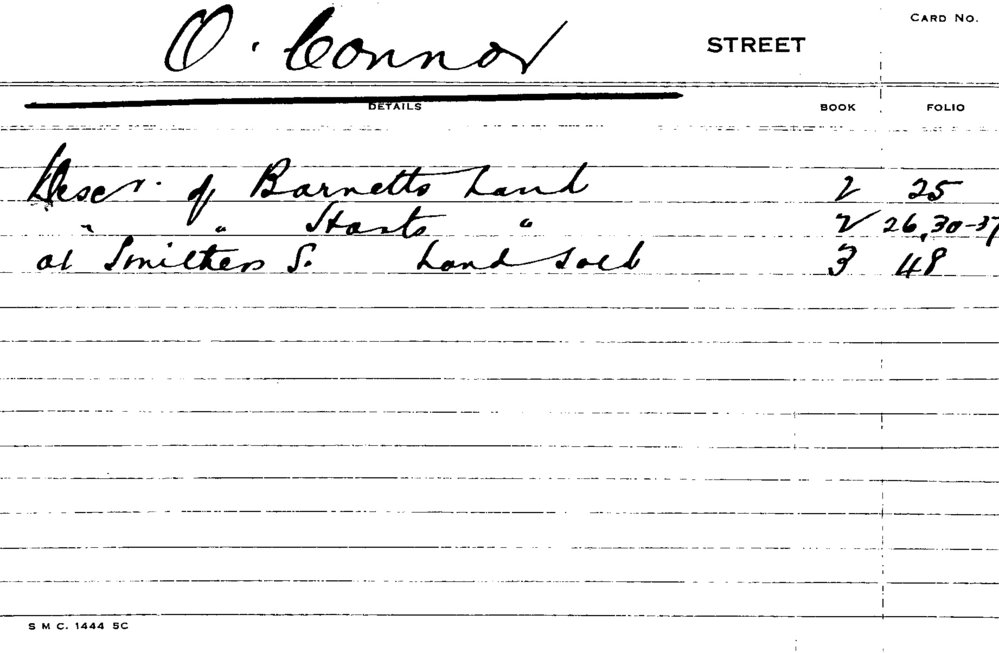 CARD NO.
O'Connor STREET
DETAILS BOOK FOLIO
Descr. of Barnetts Land 2 25
" " Harts " 2 26, 30-37
at Smithers S. Land Sold 3 48
S M C. 1444 5C